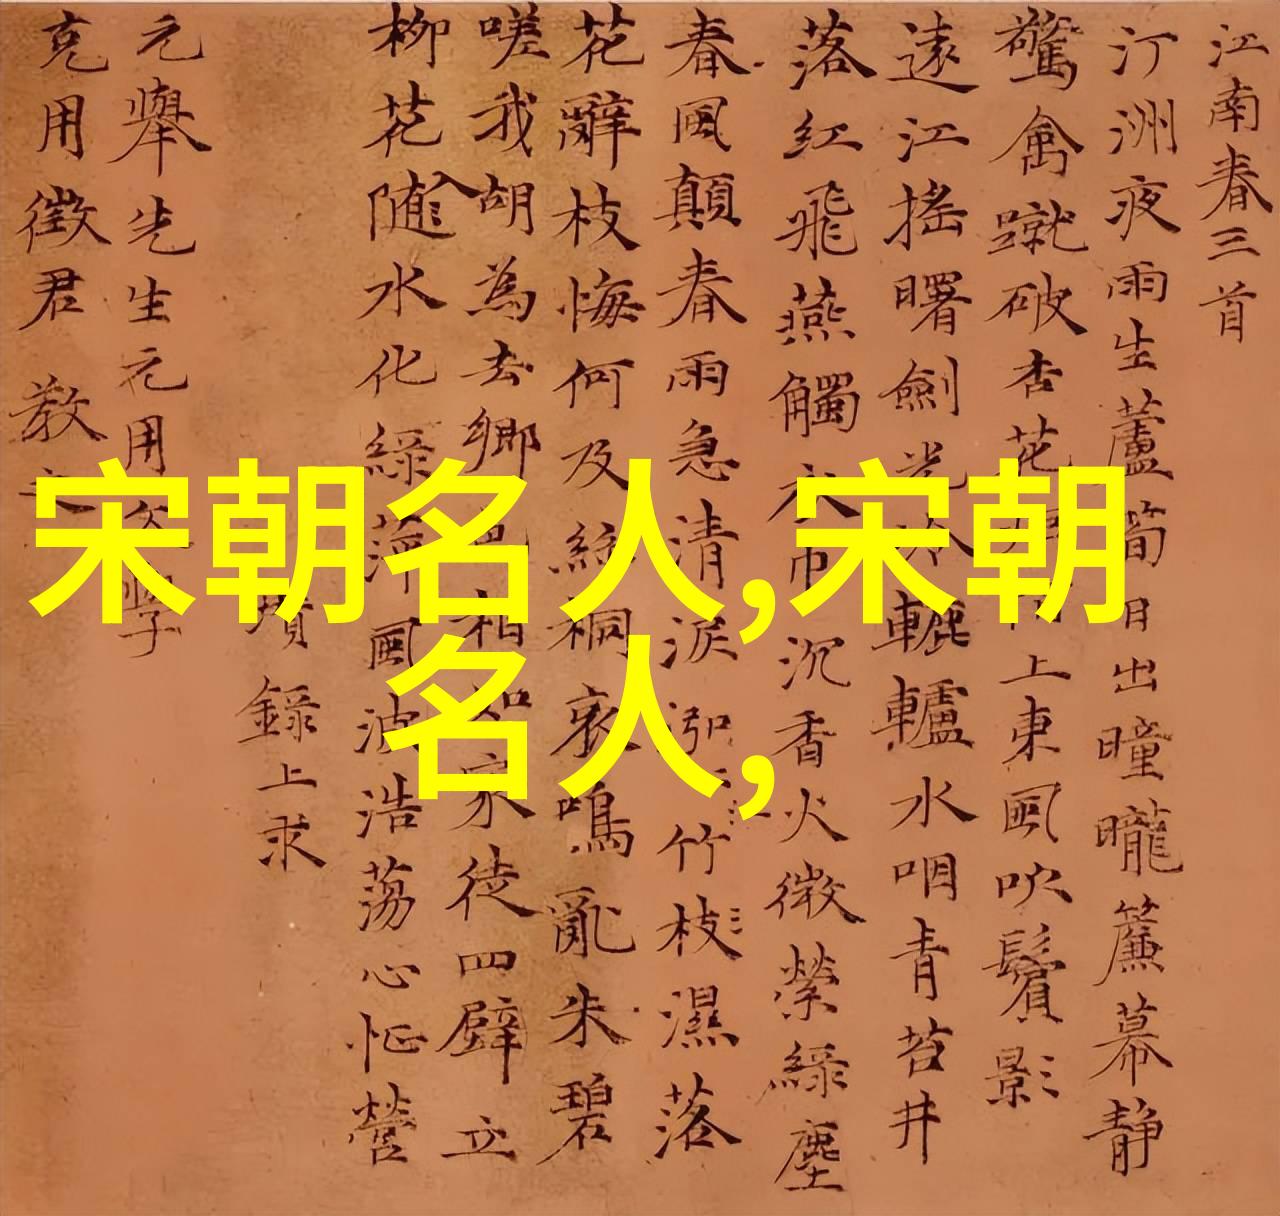 江南春三首
汀洲夜雨生蘆筍日出曈曨簾幕静
驚禽蹴破杏花上東風吹鬢影
遠江搖曙劍光冷轆轤水咽青苔井
落紅飛燕觸衣巾沉香火微縈綠塵
春風顛春雨急清淚泓竹枝濕落
花辭枝悔何及絲桐哀鳴亂朱碧
嗟我胡為去鄉邑相如家徒四壁立
柳花入隨水化綠萍風波浩蕩心怔營
瓚錄上求
元舉先生元用文學
克用徵君 教之
宋朝名人,宋朝
名人,